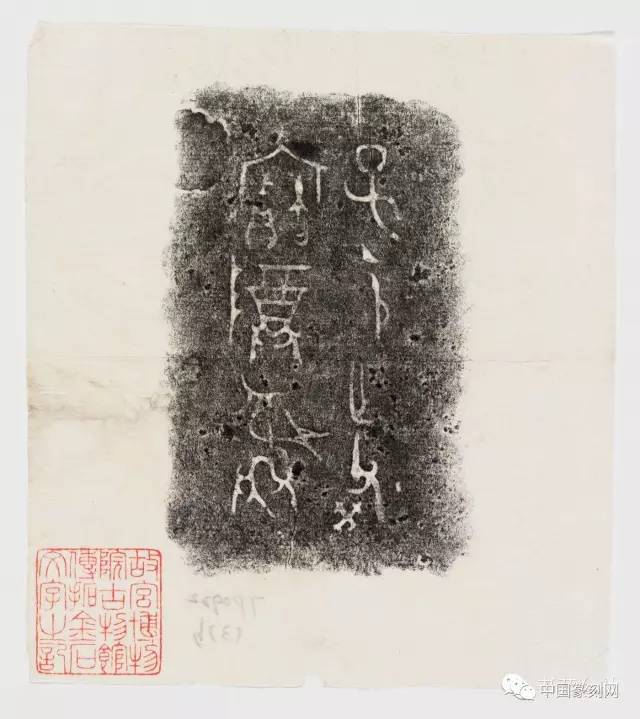 子
寶尊彝
故宮博物
院古物館
傳拓金石
文字之記
中国篆刻网